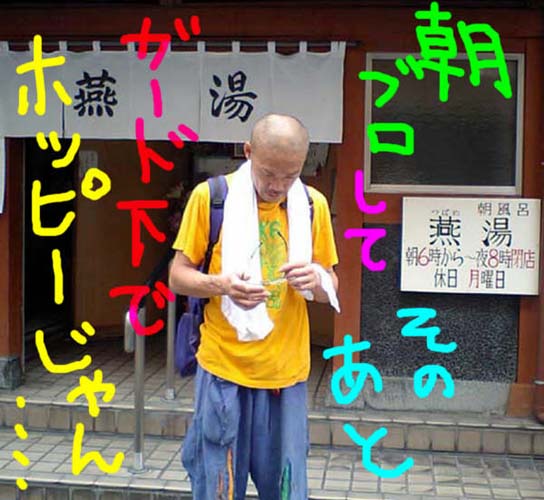 朝
ブロ
して
その
あと
ガード下で
ホッピーじゃん……
燕湯
朝風呂
つばめ
燕湯
朝6時から〜夜8時閉店
休日 月曜日